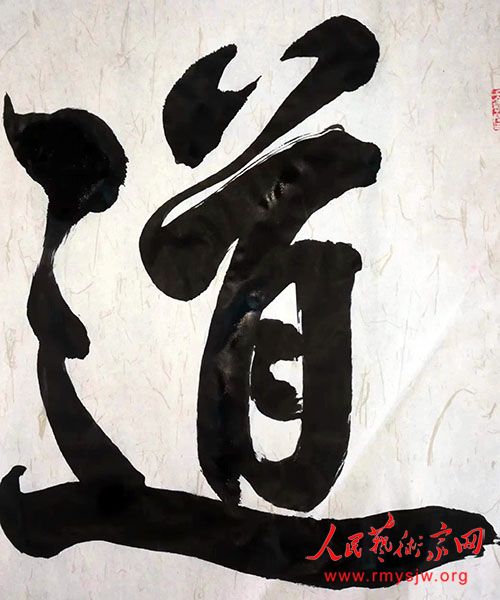 道
人民艺术家网
www.rmysjw.org